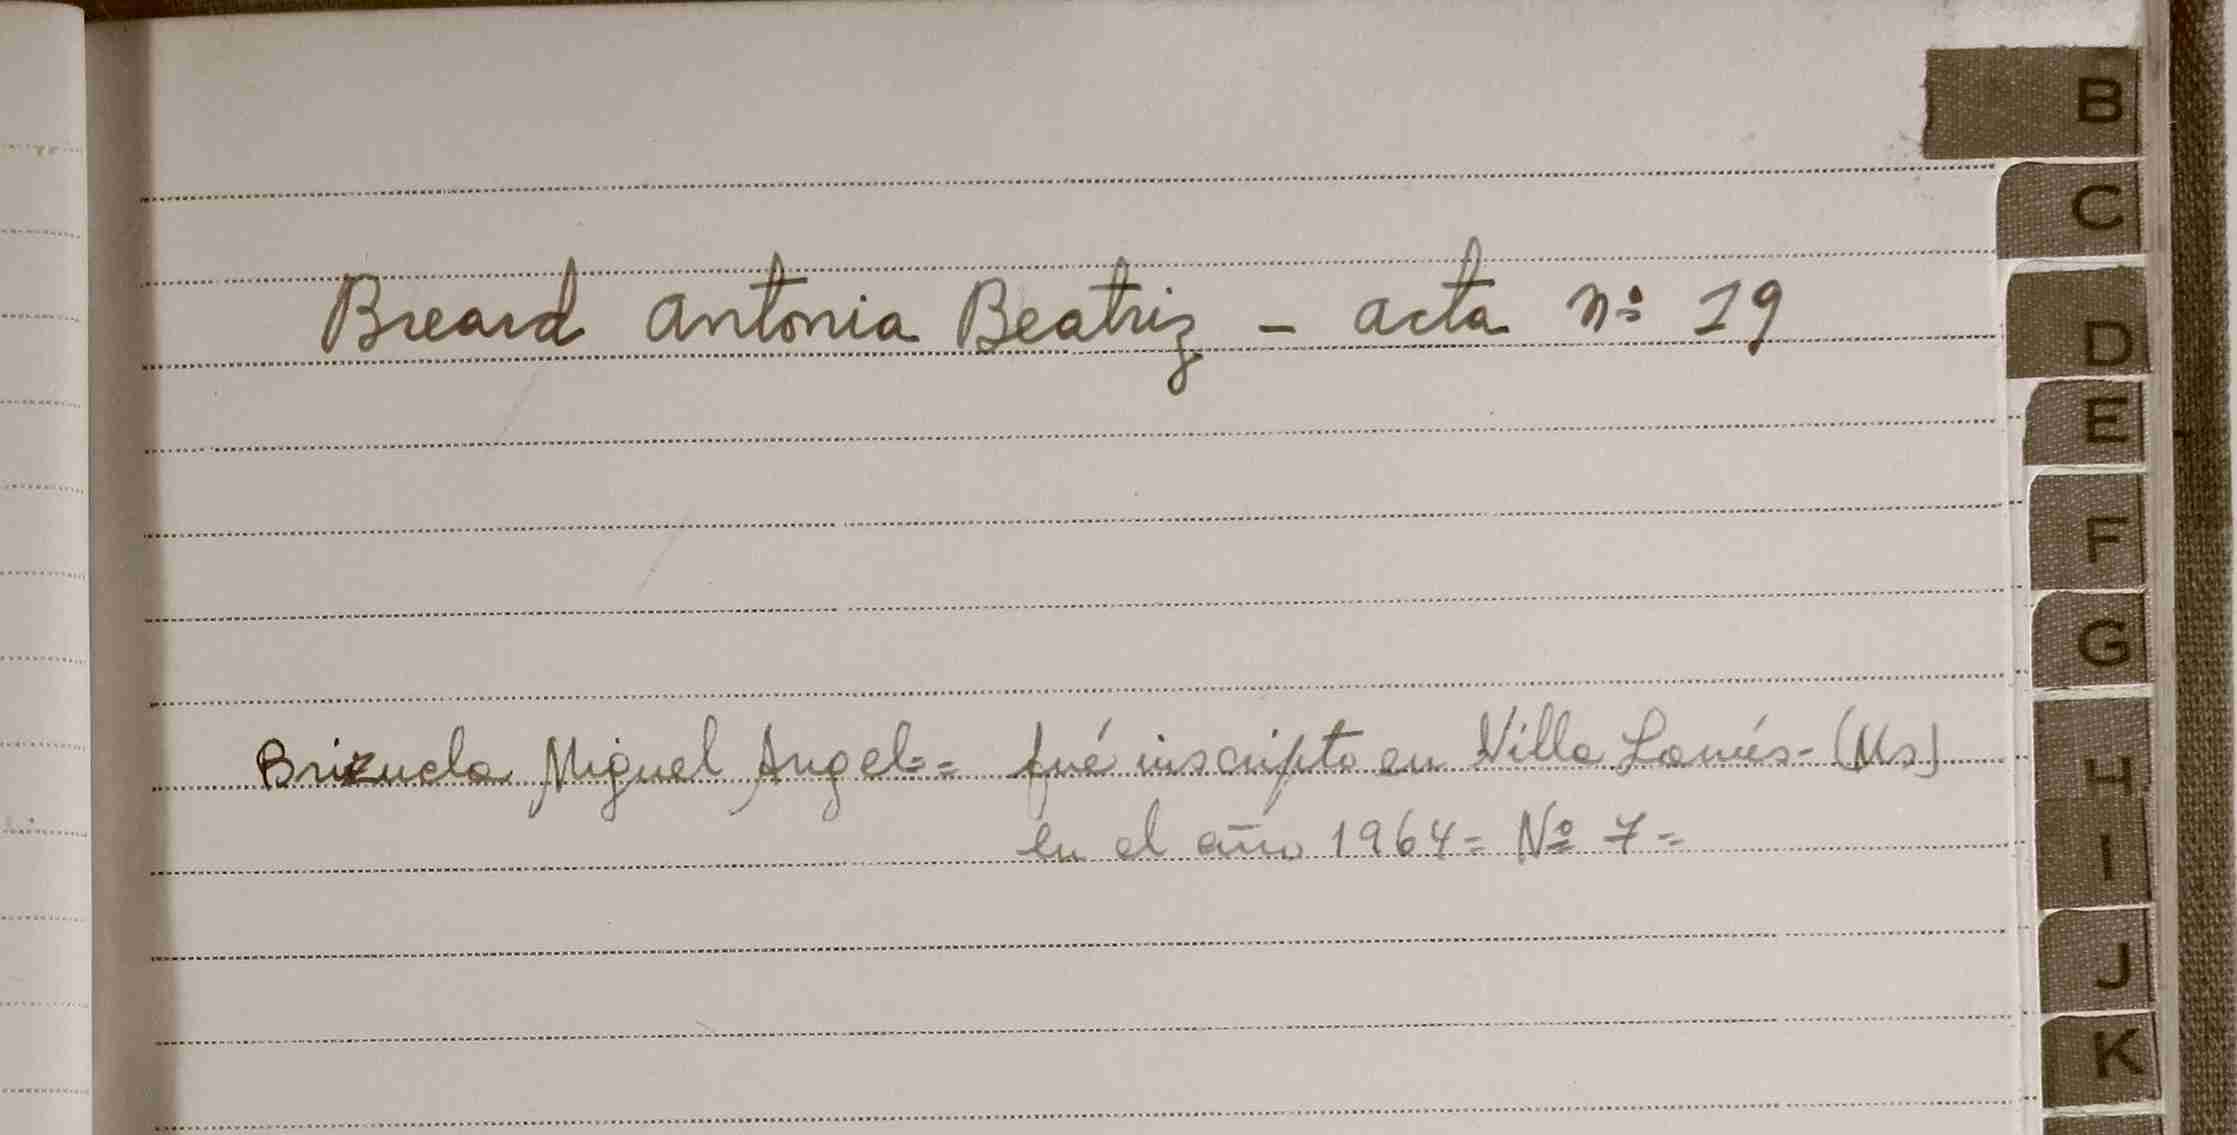 B
C
Breard Antonia Beatriz - acta nº 19
D
E
F
G
Brizuela Miguel Angel.= fué inscripto en Villa Lanús-(Ms)
H
en el año 1964= Nº 7=
I
J
K